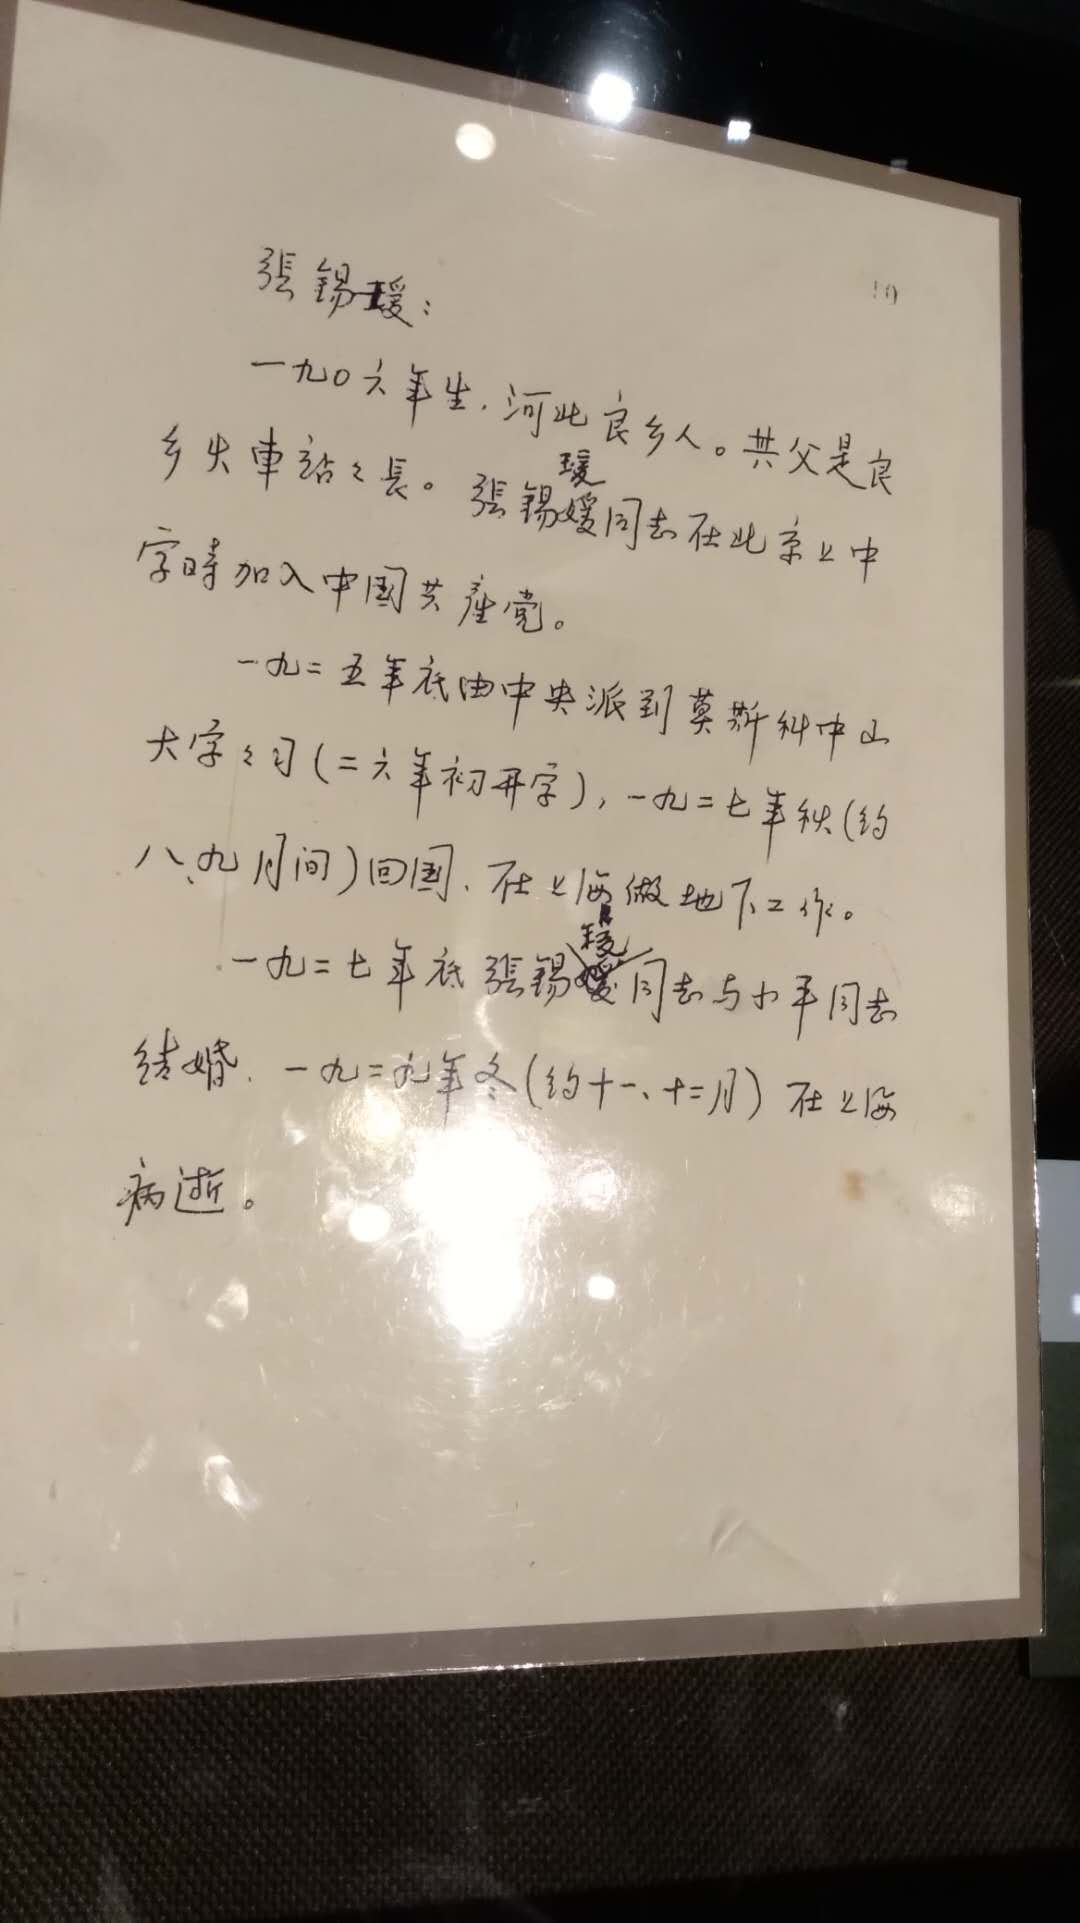 10
張錫瑗：
一九〇六年生，河北良乡人。其父是良
乡火車站々長。張錫瑗同志在北京上中
学時加入中国共産党。
一九二五年底由中央派到莫斯科中山
大学々习(二六年初开学)，一九二七年秋(约
八、九月间)回国、在上海做地下工作。
一九二七年底張錫瑗同志与小平同志
结婚、一九二九年冬(约十一、十二月)在上海
病逝。